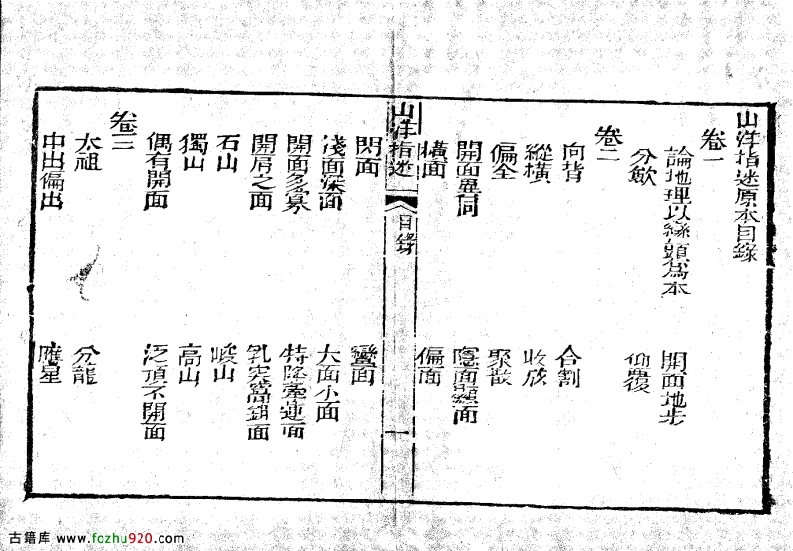 山洋指迷原本目錄
卷一
論地理以巒頭爲本　開面地步
分斂　仰覆
卷二
向背　合割
縱橫　收放
偏全　聚散
開面異同　隱面顯面
橫面　偏面
山洋指迷　目錄　一
閃面　蠻面
淺面深面　大面小面
開面多寡　特降牽連面
開肩之面　乳突窩鉗面
石山　峻山
獨山　高山
偶有開面　泛頂不開面
卷三
太祖　分龍
中出偏出　應星
古籍库 www.fczhu920.com